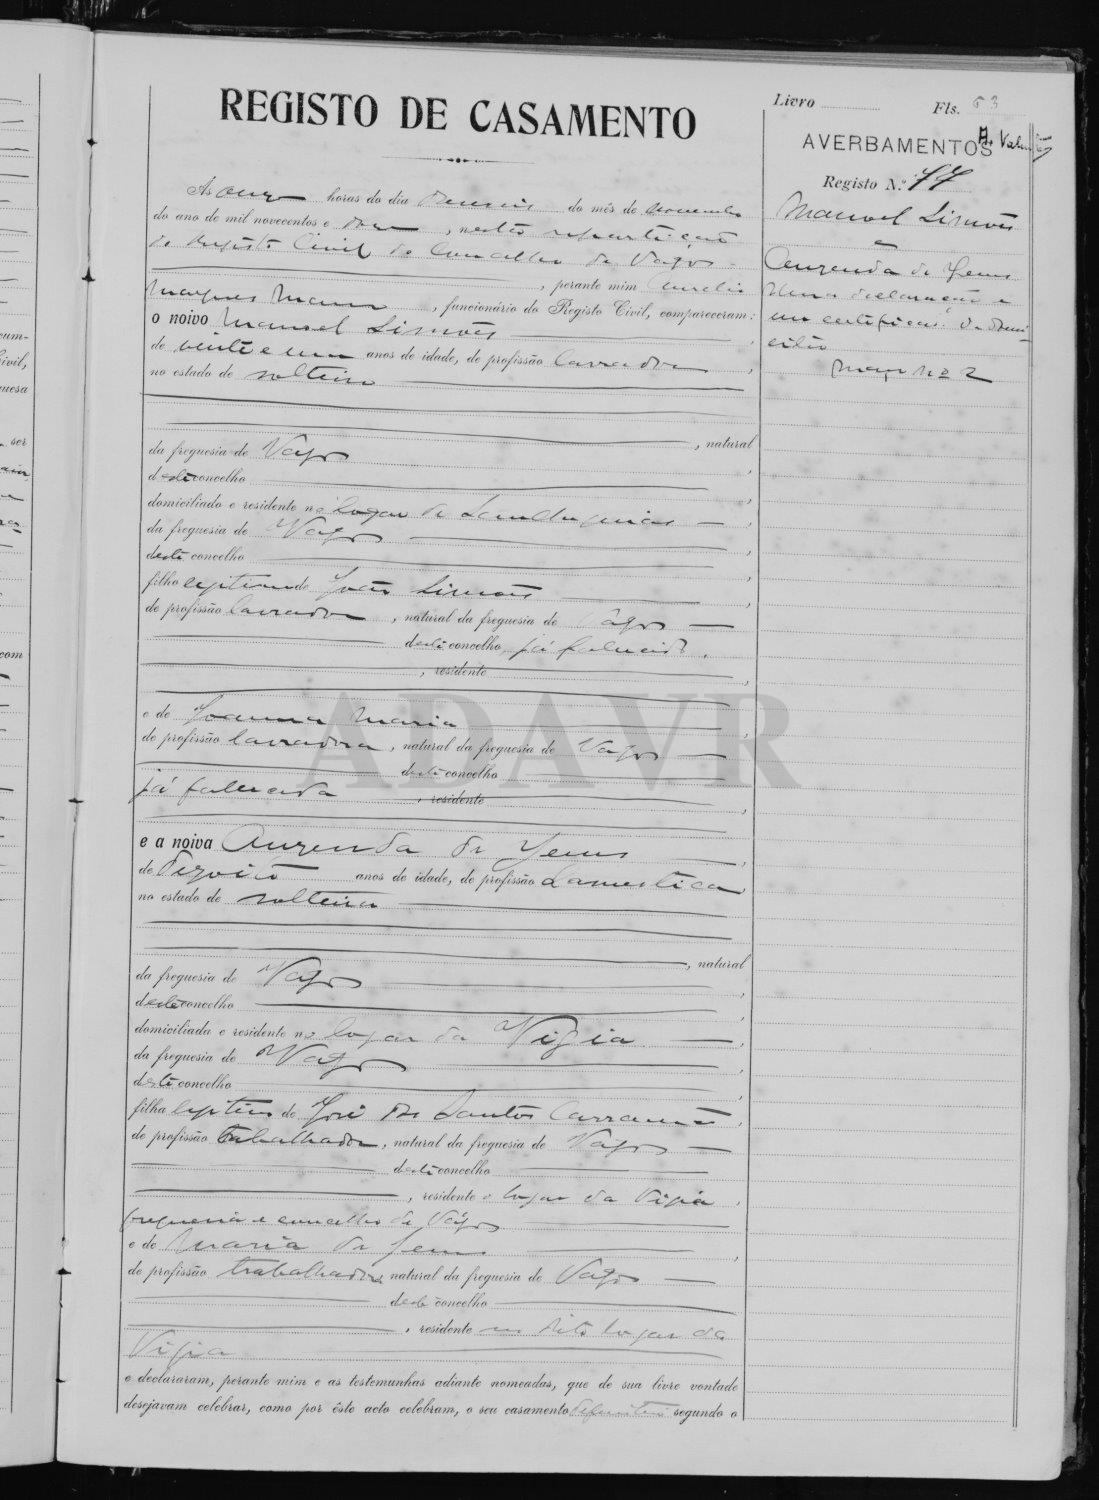 REGISTO DE CASAMENTO
Livro
Fls. 63
AVERBAMENTOS
Registo N.º 77
Manoel Simões
e
Auzenda de Jesus
Uma declaração e
um certificado
Maço nº 2
As onze horas do dia do mês de Novembro
do ano de mil novecentos e doze, nesta repartição
do Registo Civil do Concelho de Vagos
, perante mim Aurelio
Marques Mano, funcionário do Registo Civil, compareceram:
o noivo Manoel Simões
de vinte e um anos de idade, de profissão lavrador
no estado de solteiro
, natural
da freguesia de Vagos
deste concelho
domiciliado e residente no lugar de
da freguesia de Vagos
deste concelho
filho legitimo de João Simões
de profissão lavrador, natural da freguesia de Vagos
deste concelho, já falecido,
, residente
e de Joanna Maria
de profissão lavradora, natural da freguesia de Vagos
deste concelho
já falecida, residente
ADAVR
e a noiva Auzenda de Jesus
de dezoito anos de idade, de profissão domestica
no estado de solteira
, natural
da freguesia de Vagos
deste concelho
domiciliada e residente no lugar da Vigia
da freguesia de Vagos
deste concelho
filha legitima de José dos Santos Carramão
de profissão trabalhador, natural da freguesia de Vagos
deste concelho
, residente no lugar da Vigia
freguesia e concelho de Vagos
e de Maria de Jesus
de profissão trabalhadora, natural da freguesia de Vagos
deste concelho
, residente no dito lugar da
Vigia
e declararam, perante mim e as testemunhas adiante nomeadas, que de sua livre vontade
desejavam celebrar, como por êste acto celebram, o seu casamento definitivo segundo o